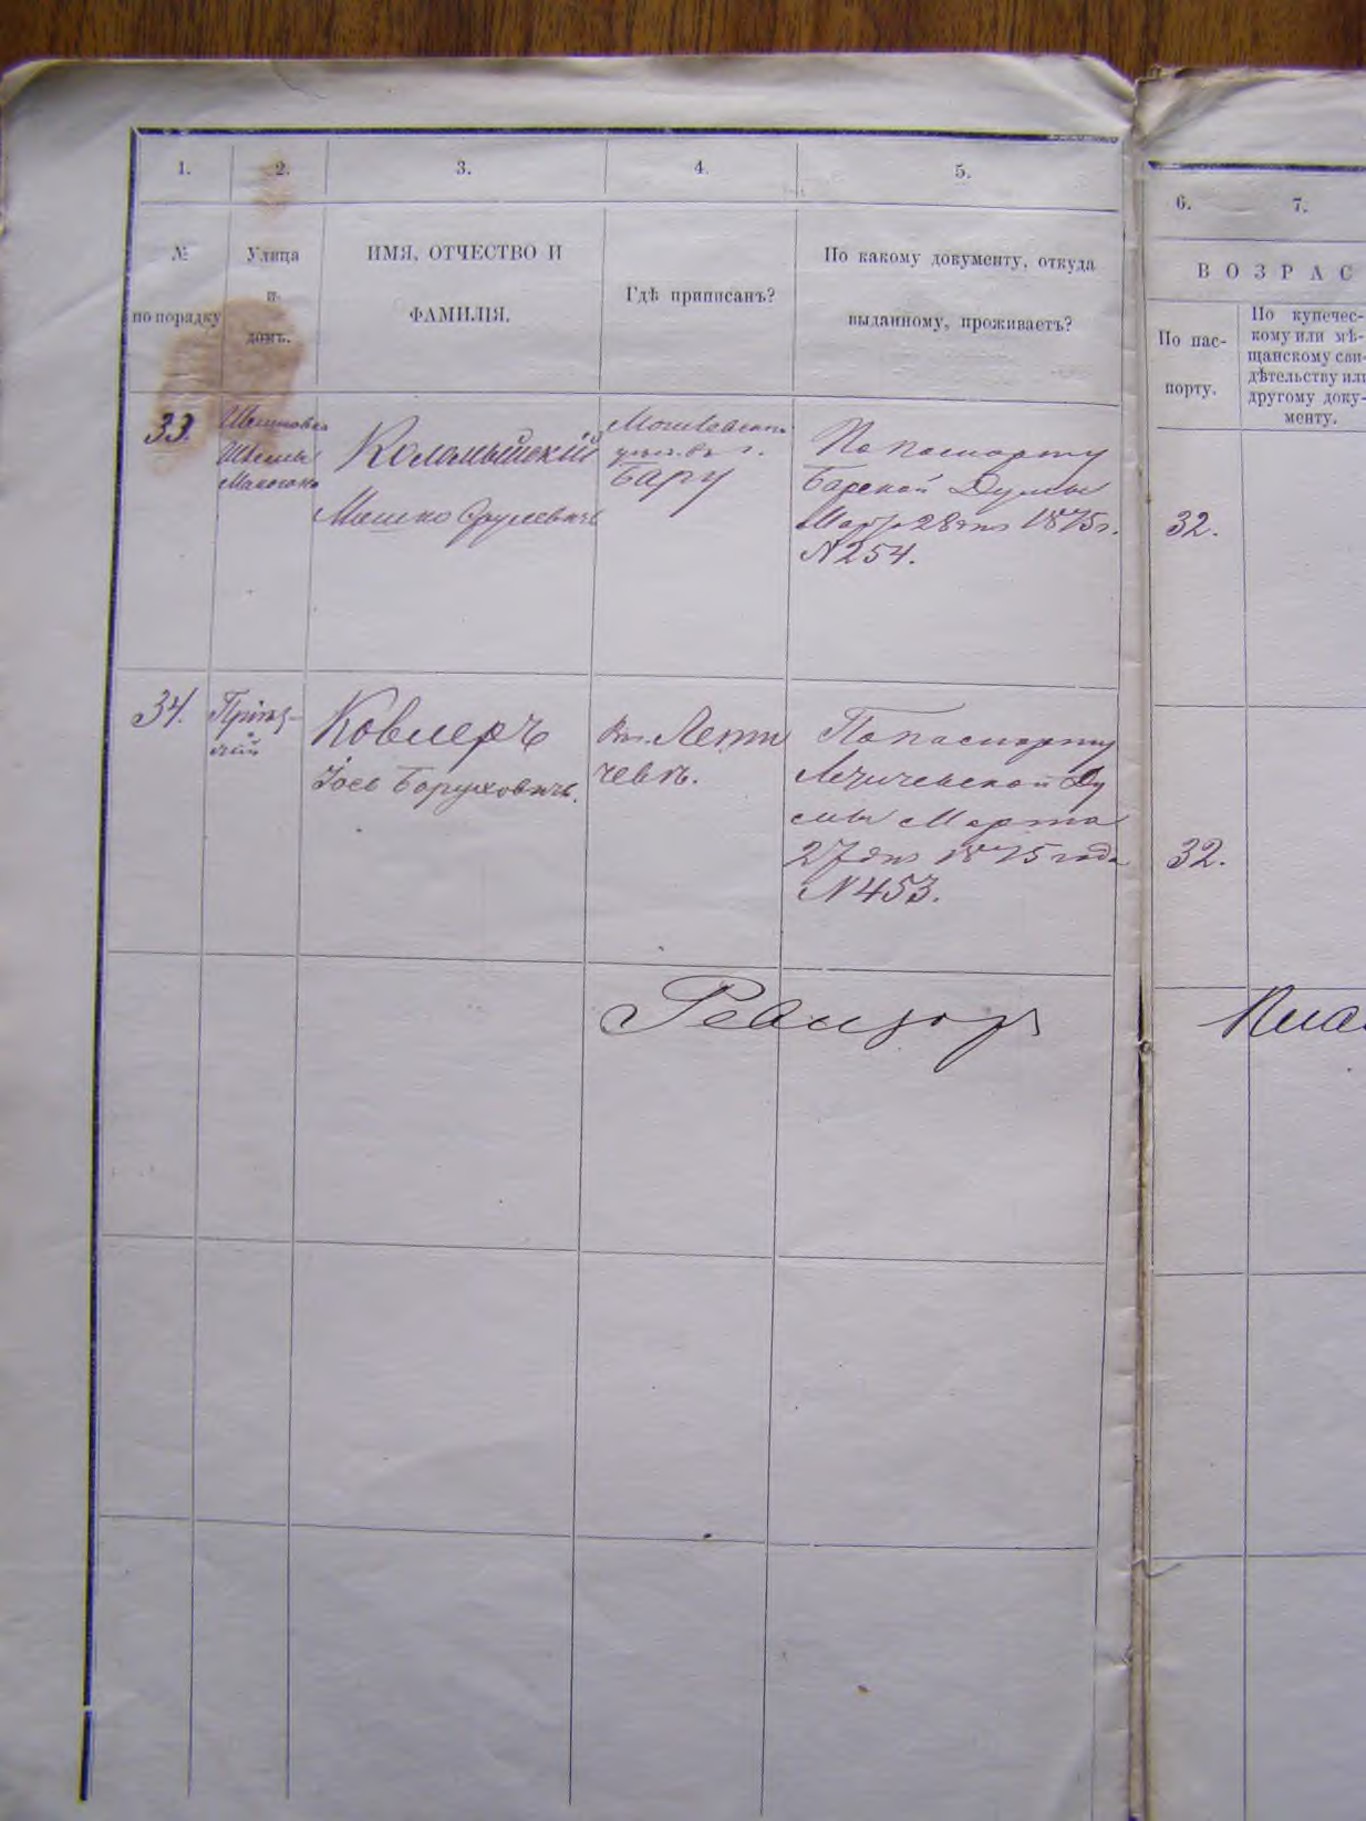 1.
2.
3.
4.
5.
№
по порядку
Улица
и
домъ.
ИМЯ, ОТЧЕСТВО И
ФАМИЛІЯ.
Гдѣ приписанъ?
По какому документу, откуда
выданному, проживаетъ?
33.
Коломыйскій
Мошко Срулевичъ
Могилевскаго
уѣзд. въ г.
Бару
По паспорту
Барской Думы
Марта 28 дня 1875 г.
№ 254.
34.
Ковлеръ
Іось Боруховичъ.
въ Лети
чевѣ.
По паспорту
Летичевской Ду
мы Марта
27 дня 1875 года
№ 453.
Ревизоръ
6.
7.
ВОЗРАС
По пас-
порту.
По купечес-
кому или мѣ-
щанскому сви-
дѣтельству или
другому доку-
менту.
32.
32.